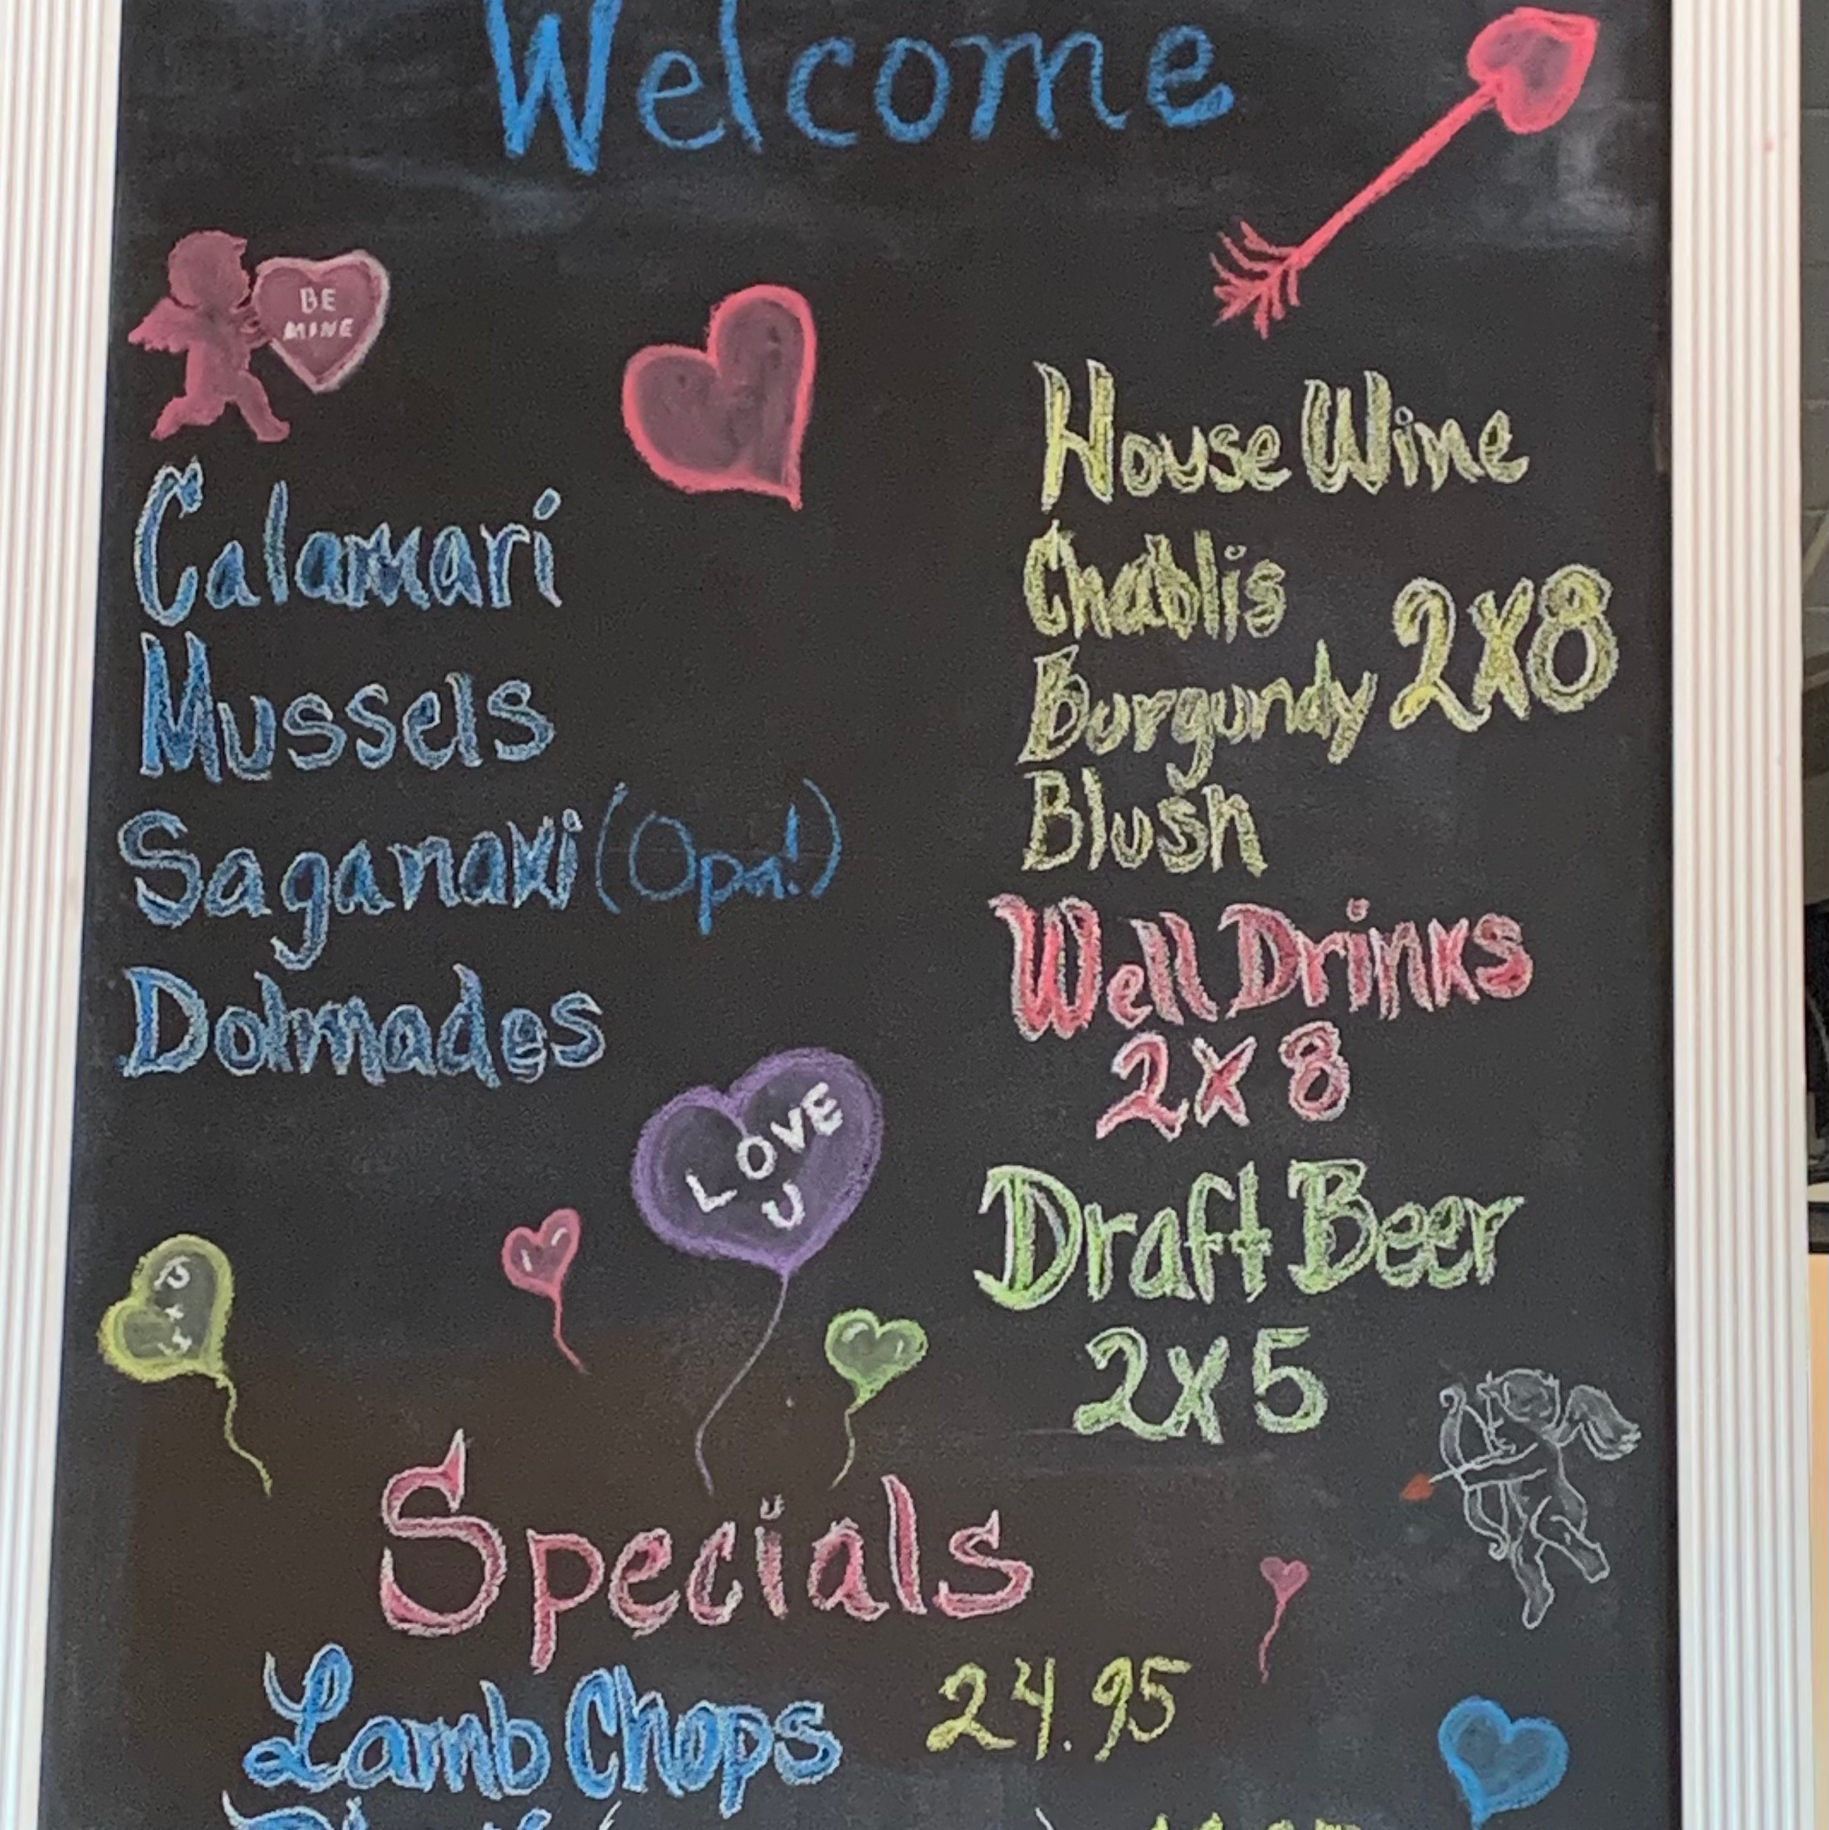 Welcome
BE
MINE
Calamari
Mussels
Saganaki (Opa!)
Dolmades
House Wine
Chablis
Burgundy 2x8
Blush
Well Drinks
2x8
Draft Beer
2x5
LOVE
U
Specials
Lamb Chops 24.95